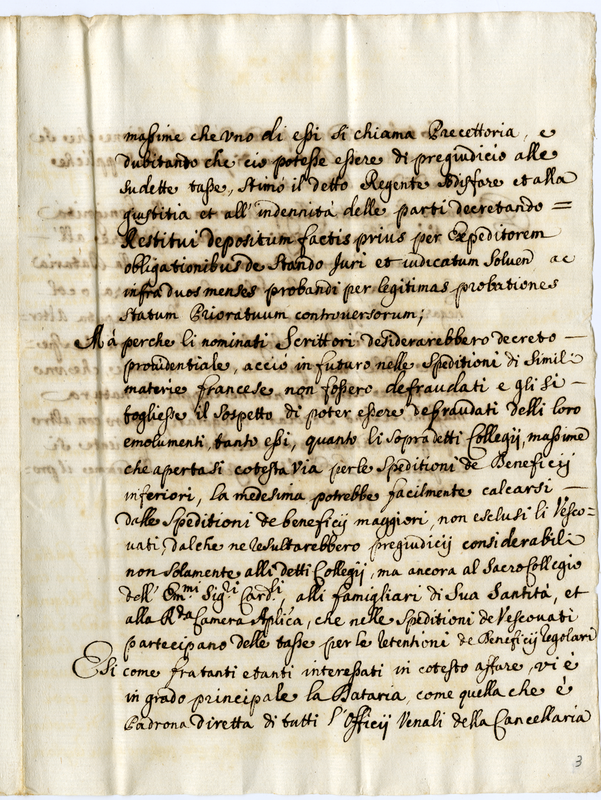 massime che uno di essi si chiama Precettoria, e
dubitando che ciò potesse essere di pregiudicio alle
sudette tasse, stimò il detto Regente sodisfare et alla
giustitia et all'indennità delle parti decretando =
Restitui depositum factis prius per Expeditorem
obligationibus de stando Juri et iudicatum solven ac
infra duos menses probandi per legitimas probationes
statum Prioratuum controversorum;
Mà perche li nominati Scrittori desiderarebbero decreto -
providentiale, acciò in futuro nelle speditioni di simil -
materie francese non fossero defraudati e gli si -
togliesse il sospetto di poter essere defraudati delli loro
emolumenti, tanto essi, quanto li sopradetti Collegij, massime
che aperta si cotesta via per le speditioni de Beneficij
inferiori, la medesima potrebbe facilmente calcarsi -
dalle speditioni de beneficij maggiori, non esclusi li Vesco=
vati, dal che ne resultarebbero pregiudicij considerabili
non solamente alli detti Collegij, ma ancora al Sacro Collegio
dell' Em.mi Sig.ri Card.li, alli famigliari di Sua Santità, et
alla R.da Camera Aplica, che nelle speditioni de Vescovati
partecipano delle tasse per le retentioni de Beneficij regolari
E si come fra tanti e tanti interessati in cotesto affare, vi è
in grado principale la Dataria, come quella che è
Padrona diretta di tutti l'Officij Venali della Cancellaria
3